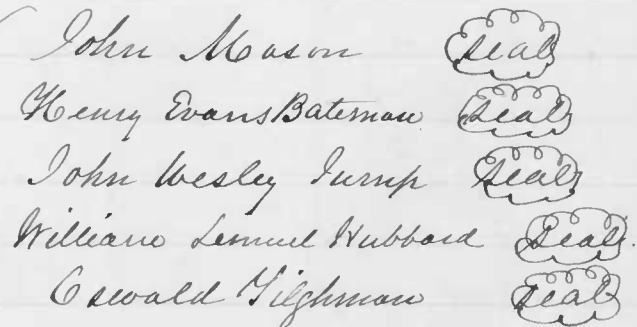 John Mason seal
Henry Evans Bateman seal
John Wesley Turnp seal
William Lemuel Hubbard seal.
Oswald Tilghman seal